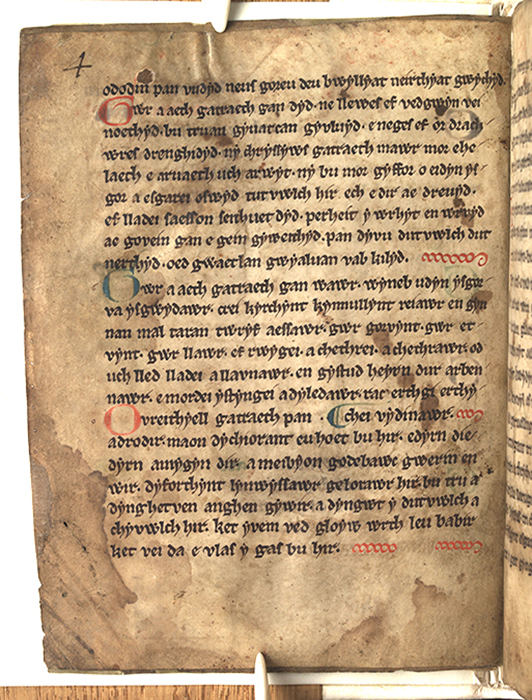 4
ododin pan vudyd neus goreu deu bwyllyat neirthyat gwychyd.
Gwr a aeth gatraeth gan dyd. ne llewes ef vedgwyn vei
noethyd. bu truan gyuatcan gyvluyd. e neges ef or drach
wres drenghidyd. ny chryssyws gatraeth mawr mor ehe
laeth e aruaeth uch arwyt. ny bu mor gyffor o eidyn ys
gor a esgarei oswyd tutvwlch hir ech e dir ae dreuyd.
ef lladei saesson seithuet dyd. perheit y wrhyt en wrvyd
ae govein gan e gein gyweithyd. pan dyvu dutvwlch dut
nerthyd. oed gwaetlan gwyaluan vab kilyd.
Gwr a aeth gatraeth gan wawr. wyneb udyn ysgor
va ysgwydawr. crei kyrchynt kynnullynt reiawr en gyn
nan mal taran twryf aessawr. gwr gorvynt. gwr et
vynt. gwr llawr. ef rwygei. a chethrei. a chethrawr. od
uch lled lladei a llavnawr. en gystud heyrn dur arben
nawr. e mordei ystyngei a dyledawr. rac erthgi erthy
Ovreithyell gatraeth pan chei vydinawr.
adrodir. maon dychiorant eu hoet bu hir. edyrn die
dyrn amygyn dir. a meibyon godebawc gwerin en
wir. dyforthynt lynwyssawr gelorawr hir. bu tru a
dynghetven anghen gywir. a dyngwt y dutvwlch a
chyvwlch hir. ket yvein ved gloyw wrth leu babir
ket vei da e vlas y gas bu hir.